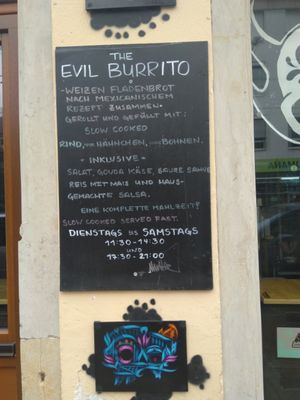 THE
EVIL BURRITO
- WEIZEN FLADENBROT
NACH MEXICANISCHEM
REZEPT ZUSAMMEN-
GEROLLT UND GEFÜLLT MIT:
SLOW COOKED
RIND, VOM HÄHNCHEN, BOHNEN.
- INKLUSIVE -
SALAT, GOUDA KÄSE, SAURE SAHNE
REIS MIT MAIS UND HAUS-
GEMACHTE SALSA.
EINE KOMPLETTE MAHLZEIT!
SLOW COOKED SERVED FAST.
DIENSTAGS BIS SAMSTAGS
11:30 - 14:30
UND
17:30 - 21:00